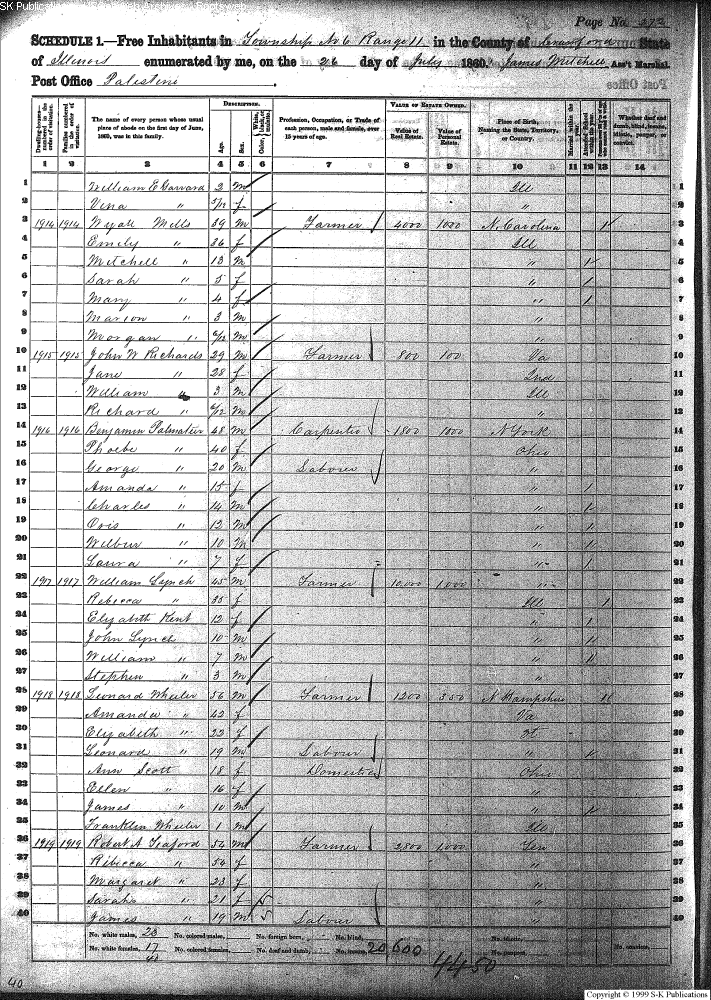 SK Publications
Page No. 273
SCHEDULE 1.—Free Inhabitants in Township No 6 Range 11 in the County of Crawford State
of Illinois enumerated by me, on the 26 day of July 1860. James Mitchell Ass't Marshal.
Post Office Palestine
Dwelling-houses—numbered in the order of visitation. Families numbered in the order of visitation. The name of every person whose usual place of abode on the first day of June, 1860, was in this family. DESCRIPTION. Age. Sex. Color, White, black, or mulatto. Profession, Occupation, or Trade of each person, male and female, over 15 years of age. VALUE OF ESTATE OWNED. Value of Real Estate. Value of Personal Estate. Place of Birth, Naming the State, Territory, or Country. Married within the year. Attended School within the year. Whether deaf and dumb, blind, insane, idiotic, pauper, or convict.
1 2 3 4 5 6 7 8 9 10 11 12 13 14
1 William E 2 m Ill 1
2 Vina " 5/12 f " 2
3 1914 1914 Wyatt Mills 39 m Farmer 4000 1000 N. Carolina 1 3
4 Emily " 36 f Ill 4
5 Mitchell " 13 m " 1 5
6 Sarah " 5 f " 1 6
7 Mary " 4 f " 1 7
8 Marion " 3 m " 8
9 Morgan " 6/12 m " 9
10 1915 1915 John W Richards 29 m Farmer 800 100 Va 10
11 Jane " 28 f Ind 11
12 William " 3 m Ill 12
13 Richard " 6/12 m " 13
14 1916 1916 Benjamin Palmatier 48 m Carpenter 1800 1000 N York 14
15 Phoebe " 40 f Ohio 15
16 George " 20 m Labour " 16
17 Amanda " 15 f " 1 17
18 Charles " 14 m " 1 18
19 Ovis " 12 m " 1 19
20 Wilbur " 10 m " 1 20
21 Laura " 7 f " 1 21
22 1917 1917 William Lynch 45 m Farmer 10,000 1000 " 22
23 Rebecca " 35 f Ill 1 23
24 Elizabeth Kent 12 f " 1 24
25 John Lynch 10 m " 1 25
26 William " 7 m " 1 26
27 Stephen " 3 m " 27
28 1918 1918 Leonard Wheeler 56 m Farmer 1200 350 N Hampshire 1 28
29 Amanda " 42 f Va 29
30 Elizabeth " 22 f 30
31 Leonard " 19 m Labour " 1 31
32 Ann Scott 18 f Domestic Ohio 32
33 Ellen " 16 f " 33
34 James " 10 m " 1 34
35 Franklin Wheeler 1 m Ill 35
36 1919 1919 Robert A Seaford 54 m Farmer 2800 1000 Ten 36
37 Rebecca " 54 f " 37
38 Margaret " 23 f " 38
39 Sarah " 21 f " 39
40 James " 19 m Labour " 40
No. white males, 23 No. colored males, No. foreign born, No. blind,
No. white females, 17 No. colored females, No. deaf and dumb, No. insane, 20,600 No. idiotic, No. convicts,
4450
40
Copyright © 1999 S-K Publications